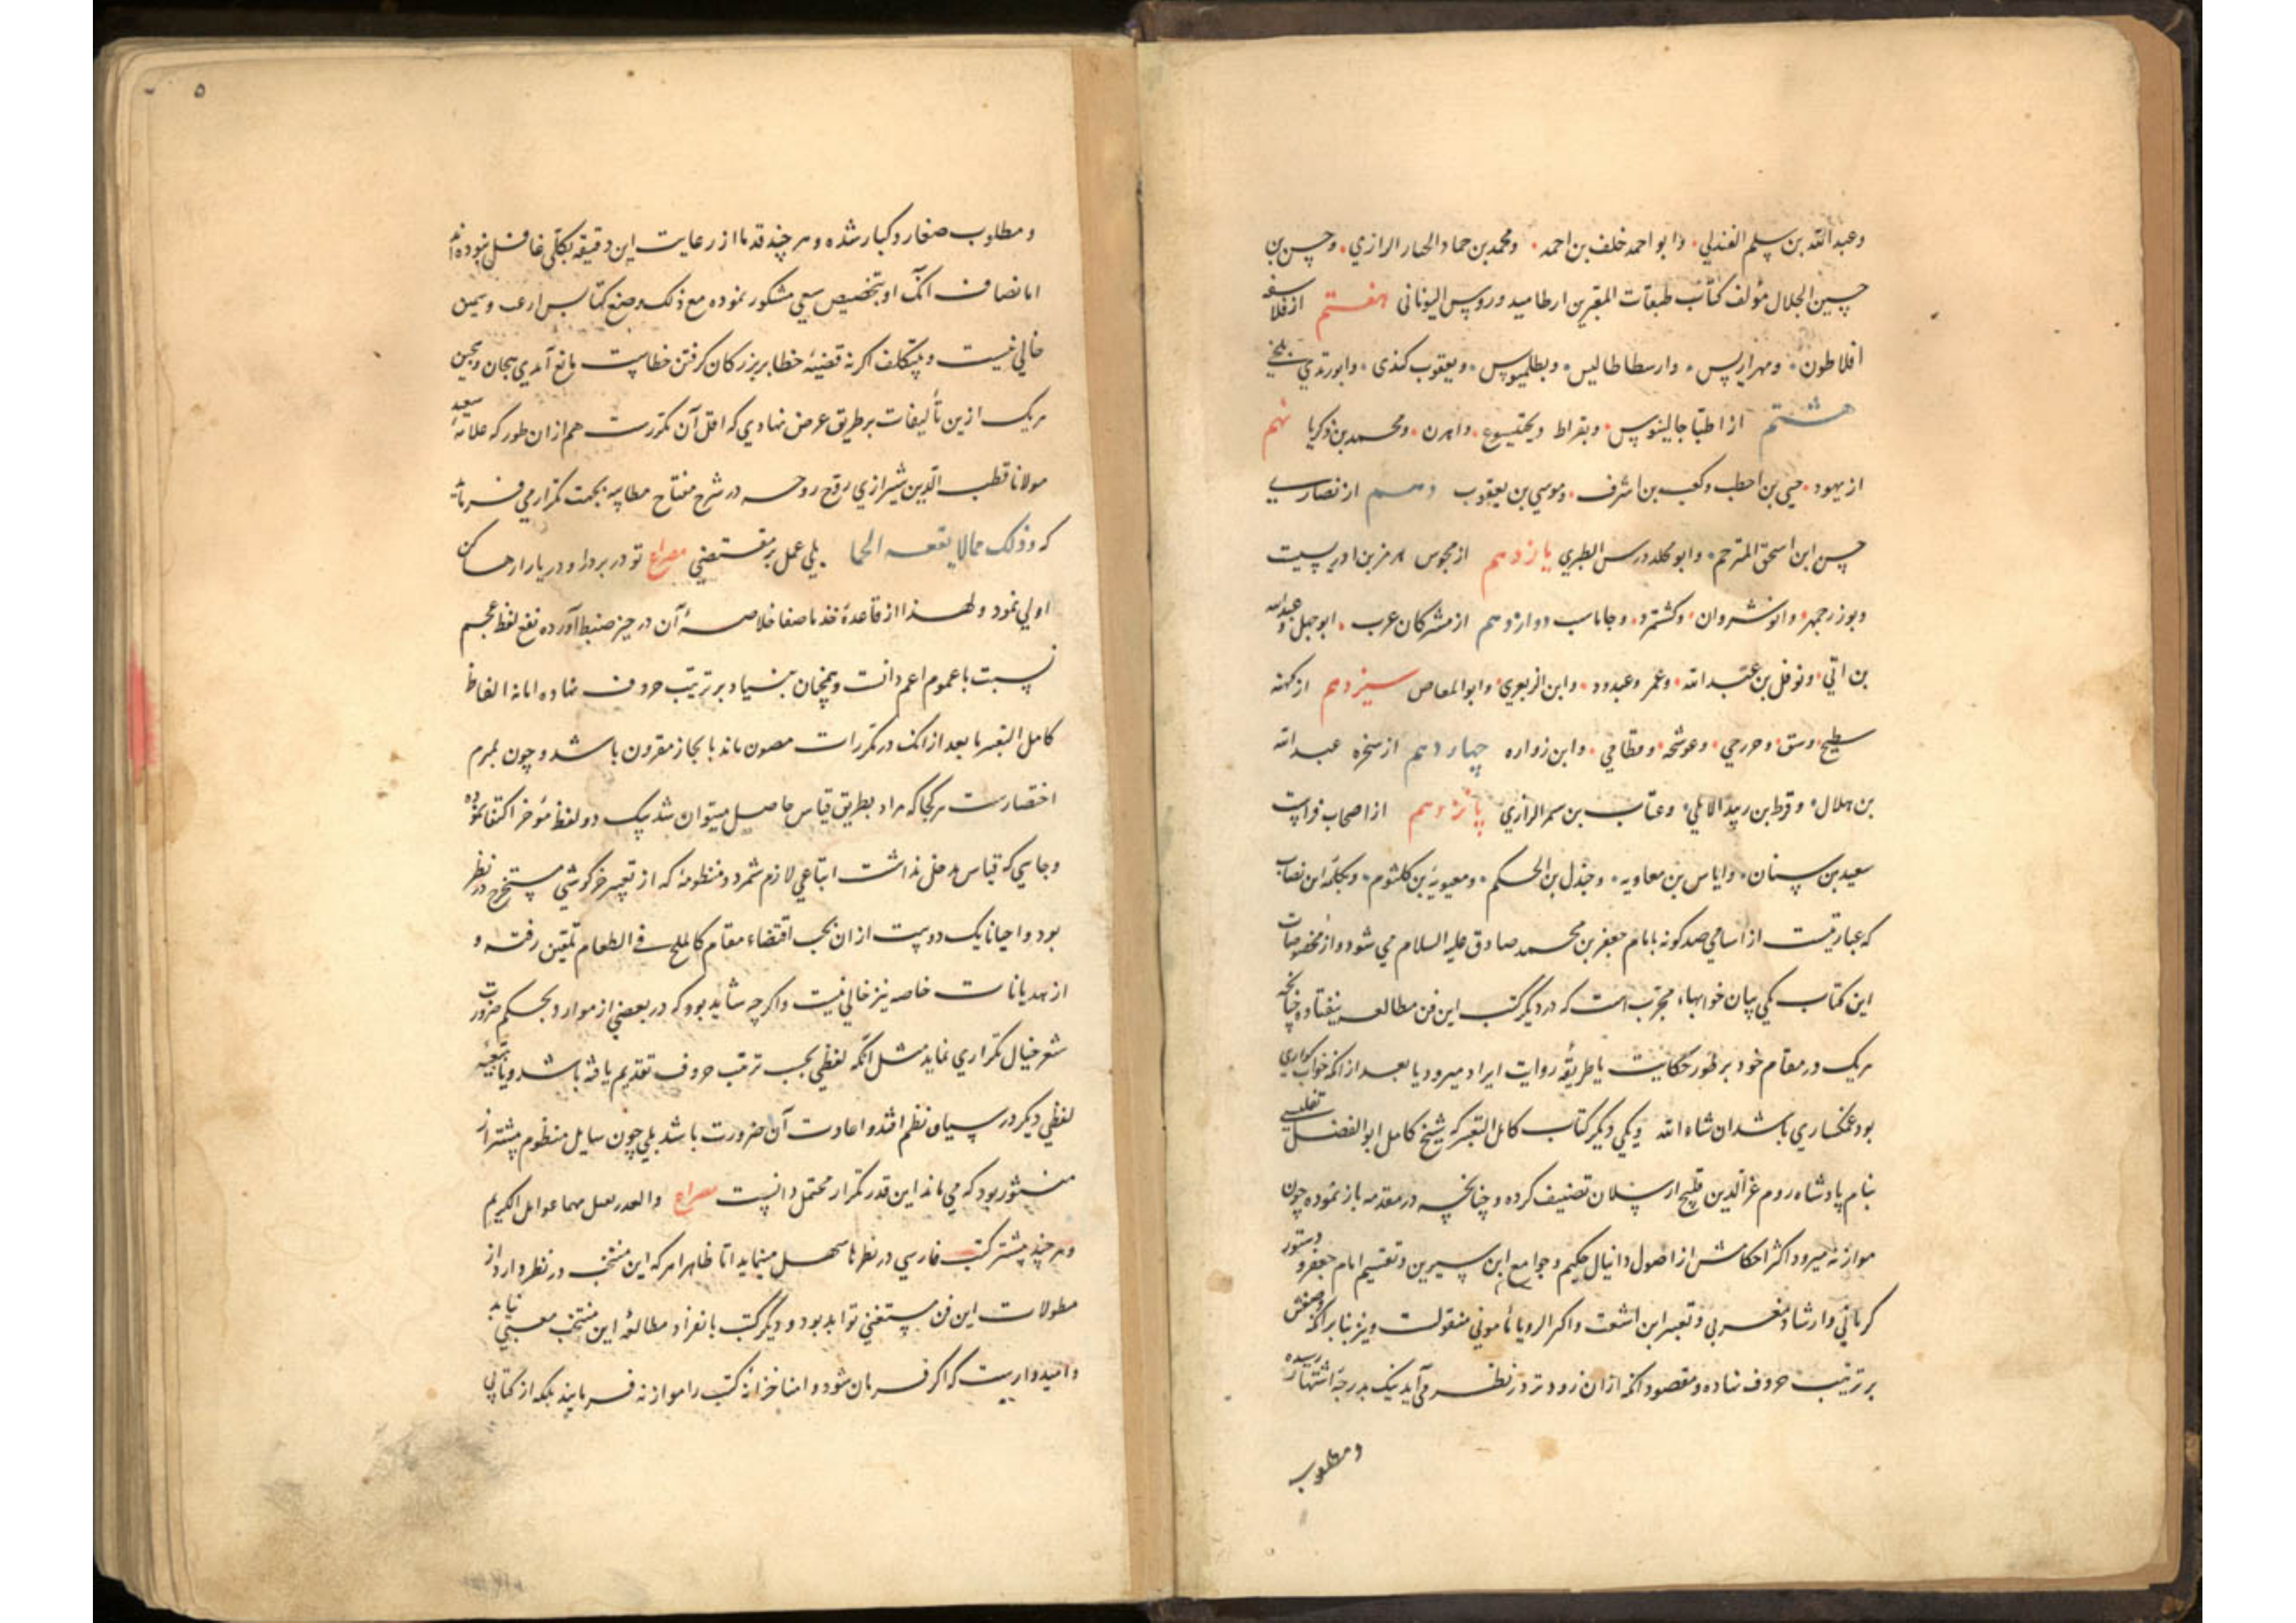 وعبد الله بن سلم الفندلي وابو احمد خلف بن احمد ومحمد بن حماد الرازي وحسن بن
حسین الجلال مؤلف کتاب طبقات المعبرین ارطامیدوروس الیونانی هفتم از فلاسفه
افلاطون ومهراریس وارسطاطالیس وبطلمیوس ویعقوب کندی وابوزید بلخي
هشتم از اطبا جالینوس وبقراط وبختیسوع واهرن ومحمد بن ذکریا نهم
از یهود حیی بن احطب وکعب بن اشرف وموسی بن یعقوب دهم از نصاری
حسن ابن اسحق المترجم وابو مخلد الطبری یازدهم از مجوس هرمز بن
وبوزرجمهر وانوشروان وکشتمرد وجاماسب دوازدهم از مشرکان عرب ابوجهل وعبد الله
بن ابي ونوفل بن عبد الله وعمر وعبدود وابن الزبعري وابو المعاص سیزدهم از کهنه
سطیح وسق وعوشحه وقطامي وابن زواره چهاردهم از سخره عبد الله
بن هلال وقرط بن زید الابلي وعتاب بن سمر الرازي پانزدهم از اصحاب فراست
سعید بن سنان وایاس بن معاویه وجندل بن الحکم ومعویة بن کلثوم
که عبارتیست از اسامي صد کونه بامام جعفر بن محمد صادق علیه السلام مي شود واز مخصوصات
این کتاب یکي بیان خوابهاء مجرب است که در دیگر کتب این فن مطالعه نیفتاده چنانچه
هریک در مقام خود بر طور حکایت یا طریقهٔ روایت ایراد میرود یا بعد از انکه خواب کواري
بود غمکساري باشد ان شاء الله ویکي دیکر کتاب کامل التعبیر که شیخ کامل ابو الفضل تفلیسي
بنام پادشاه روم عز الدین قلیج ارسلان تصنیف کرده وچنانچه در مقدمه باز نموده چون
موازنه میرود اکثر احکامش از اصول دانیال حکیم وجوامع ابن سیرین وتقسیم امام جعفر ودستور
کرماني وارشاد مغربي وتعبیر ابن اشعث وکنز الرویا مامونی منقولست ونیز بنابر انکه وضعش
بر ترتیب حروف نهاده ومقصود انکه ازان زودتر در نظر می آید نیک بدرجهٔ اشتهار رسیده
ومطلوب
۵
ومطلوب صغار وکبار شده وهر چند قدما از رعایت این دقیقه بکلي غافل نبوده اند
اما انصاف انک او بتخصیص سعي مشکور نموده مع ذلک وضع کتابش
خالي نیست وبیتکلف اکر نه قضیهٔ خطا بر بزرکان کرفتن خطاست مانع آمدي
هریک ازین تألیفات بر طریق عرض نهادي که اقل آن مکررست هم ازان طور که علامه سعید
مولانا قطب الدین شیرازي روح روحه در شرح مفتاح بجهت تکرار مي فرماید
که وذلک مما لا یقعه الحما بلي عمل بر مقتضي مصراع تو در بردار ودریا را رها کن
اولي نمود ولهذا از قاعدهٔ خذ ما صفا خلاصهٔ آن در حیز ضبط آورده نفع لفظ عجم
نسبت با عموم اعم دانست وهمچنان بنیاد بر ترتیب حروف نهاده اما نه الفاظ
کامل التعبیر تا بعد از انک در مکررات مصون ماند بایجاز مقرون باشد وچون بمرم
اختصارست هر کجا که مراد بطریق قیاس حاصل میتوان شد بیک دو لفظ مؤخر اکتفا نموده
وجایي که قیاس مدخل نداشت اتباعي لازم شمرد ومنظومهٔ که از تعبیر خرکوشي مستخرج در نظر
بود واحیانا یک دو بیت ازان بحسب اقتضاء مقام کالملح في الطعام تلقین رفته و
از هدیانات خاصه نیز خالي نیست واکر چه شاید بود که در بعضي از موارد بحکم ضرورت
شعر خیال تکراري نماید مثل انکه لفظي بحسب ترتیب حروف تقدیم یافته باشد
لفظي دیکر در سیاق نظم افتد واعادت آن ضرورت باشد بلي چون مسایل منظوم پیشتر از
منثور بود که مي ماند این قدر تکرار محتمل دانست مصراع
وهر چند بیشتر کتب فارسي در نظرها سهل مینماید اما ظاهرا هر که این منتخب در نظر دارد از
مطولات این فن مستغني تواند بود ودیکر کتب بانفراد مطالعهٔ این منتخب مغني نیاید
وامیدواریست که اکر فرمان شود وامنا خزانهٔ کتب را موازنه فرمایند بلکه از کتابي